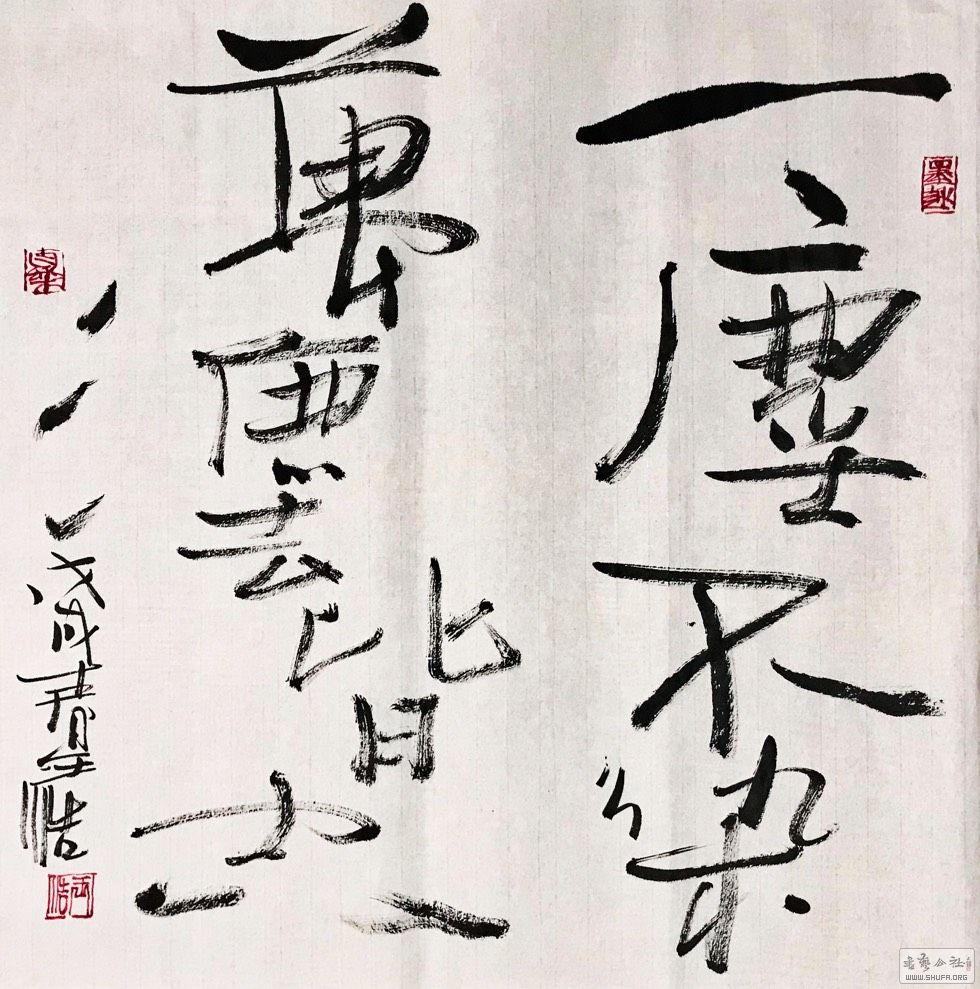 一塵不染
萬灋皆空
戊戌春
書藝公社
WWW.SHUFA.ORG